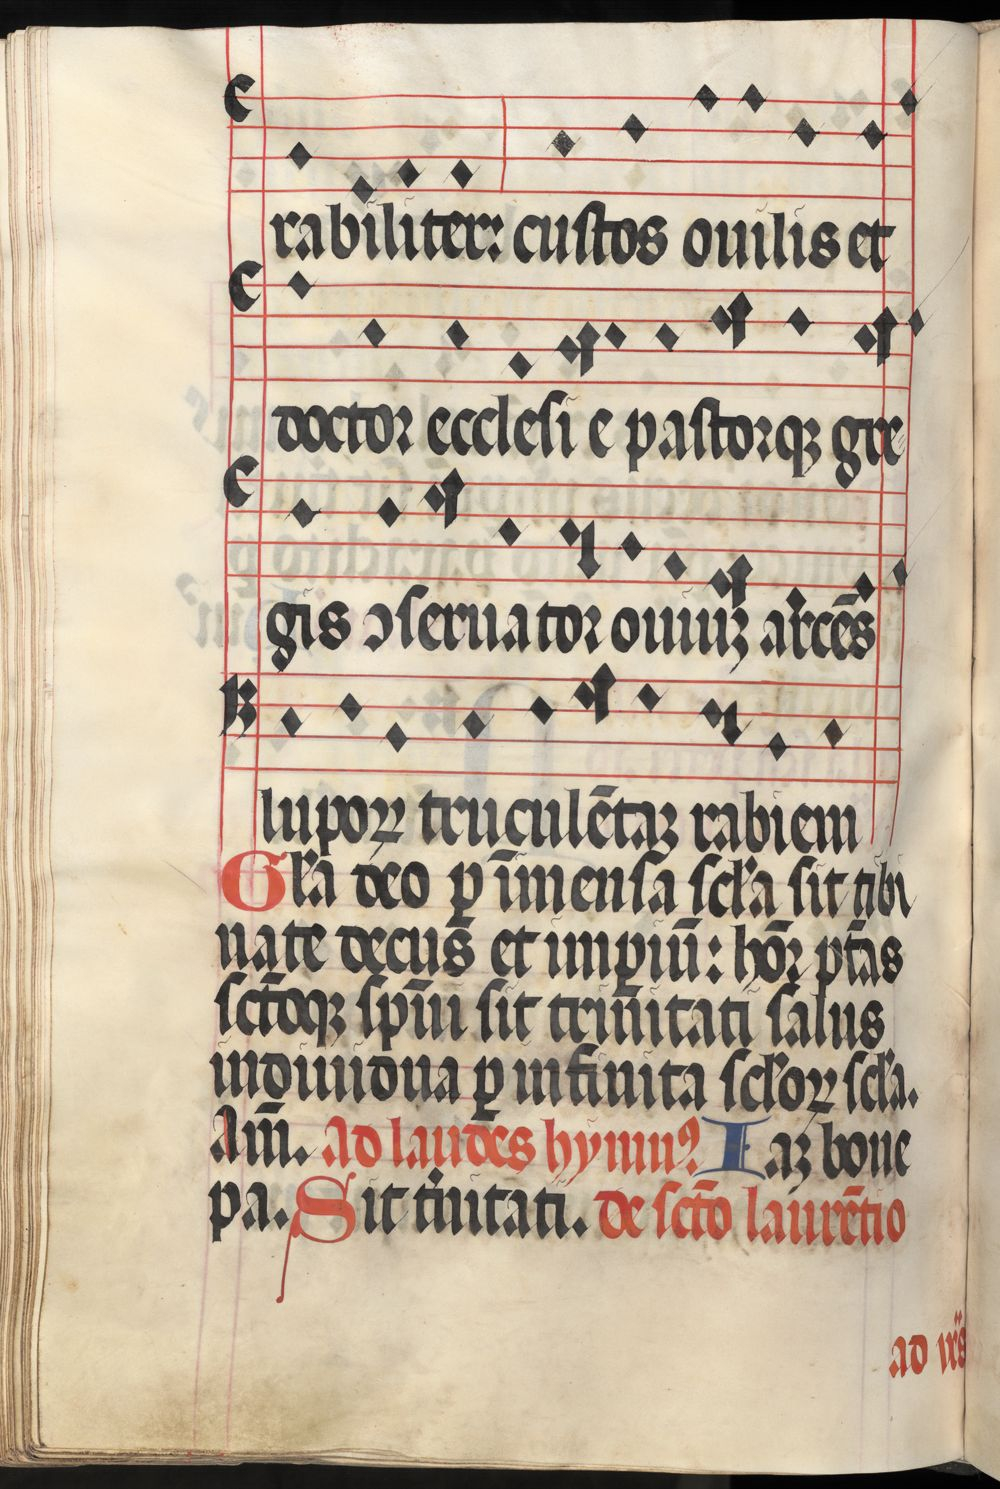 rabiliter: custos ouilis et
doctor ecclesi e pastorqꝫ gre
gis ↄseruator ouiuꝫ arcēs
lupoꝝ truculētaꝫ rabiem
Gl̄a deo ꝑ īmensa scl̄a sit tibi
nate decus et imꝑiū: hōꝛ ptās
sctōqꝫ spūi sit trinitati salus
indiuidua ꝑ infinita scl̄oꝝ scl̄a.
Am̄. ad laudes hymnꝰ. Iaꝫ bone
pa. Sit tͥnitati. de sctō laurētio
ad vr̄s